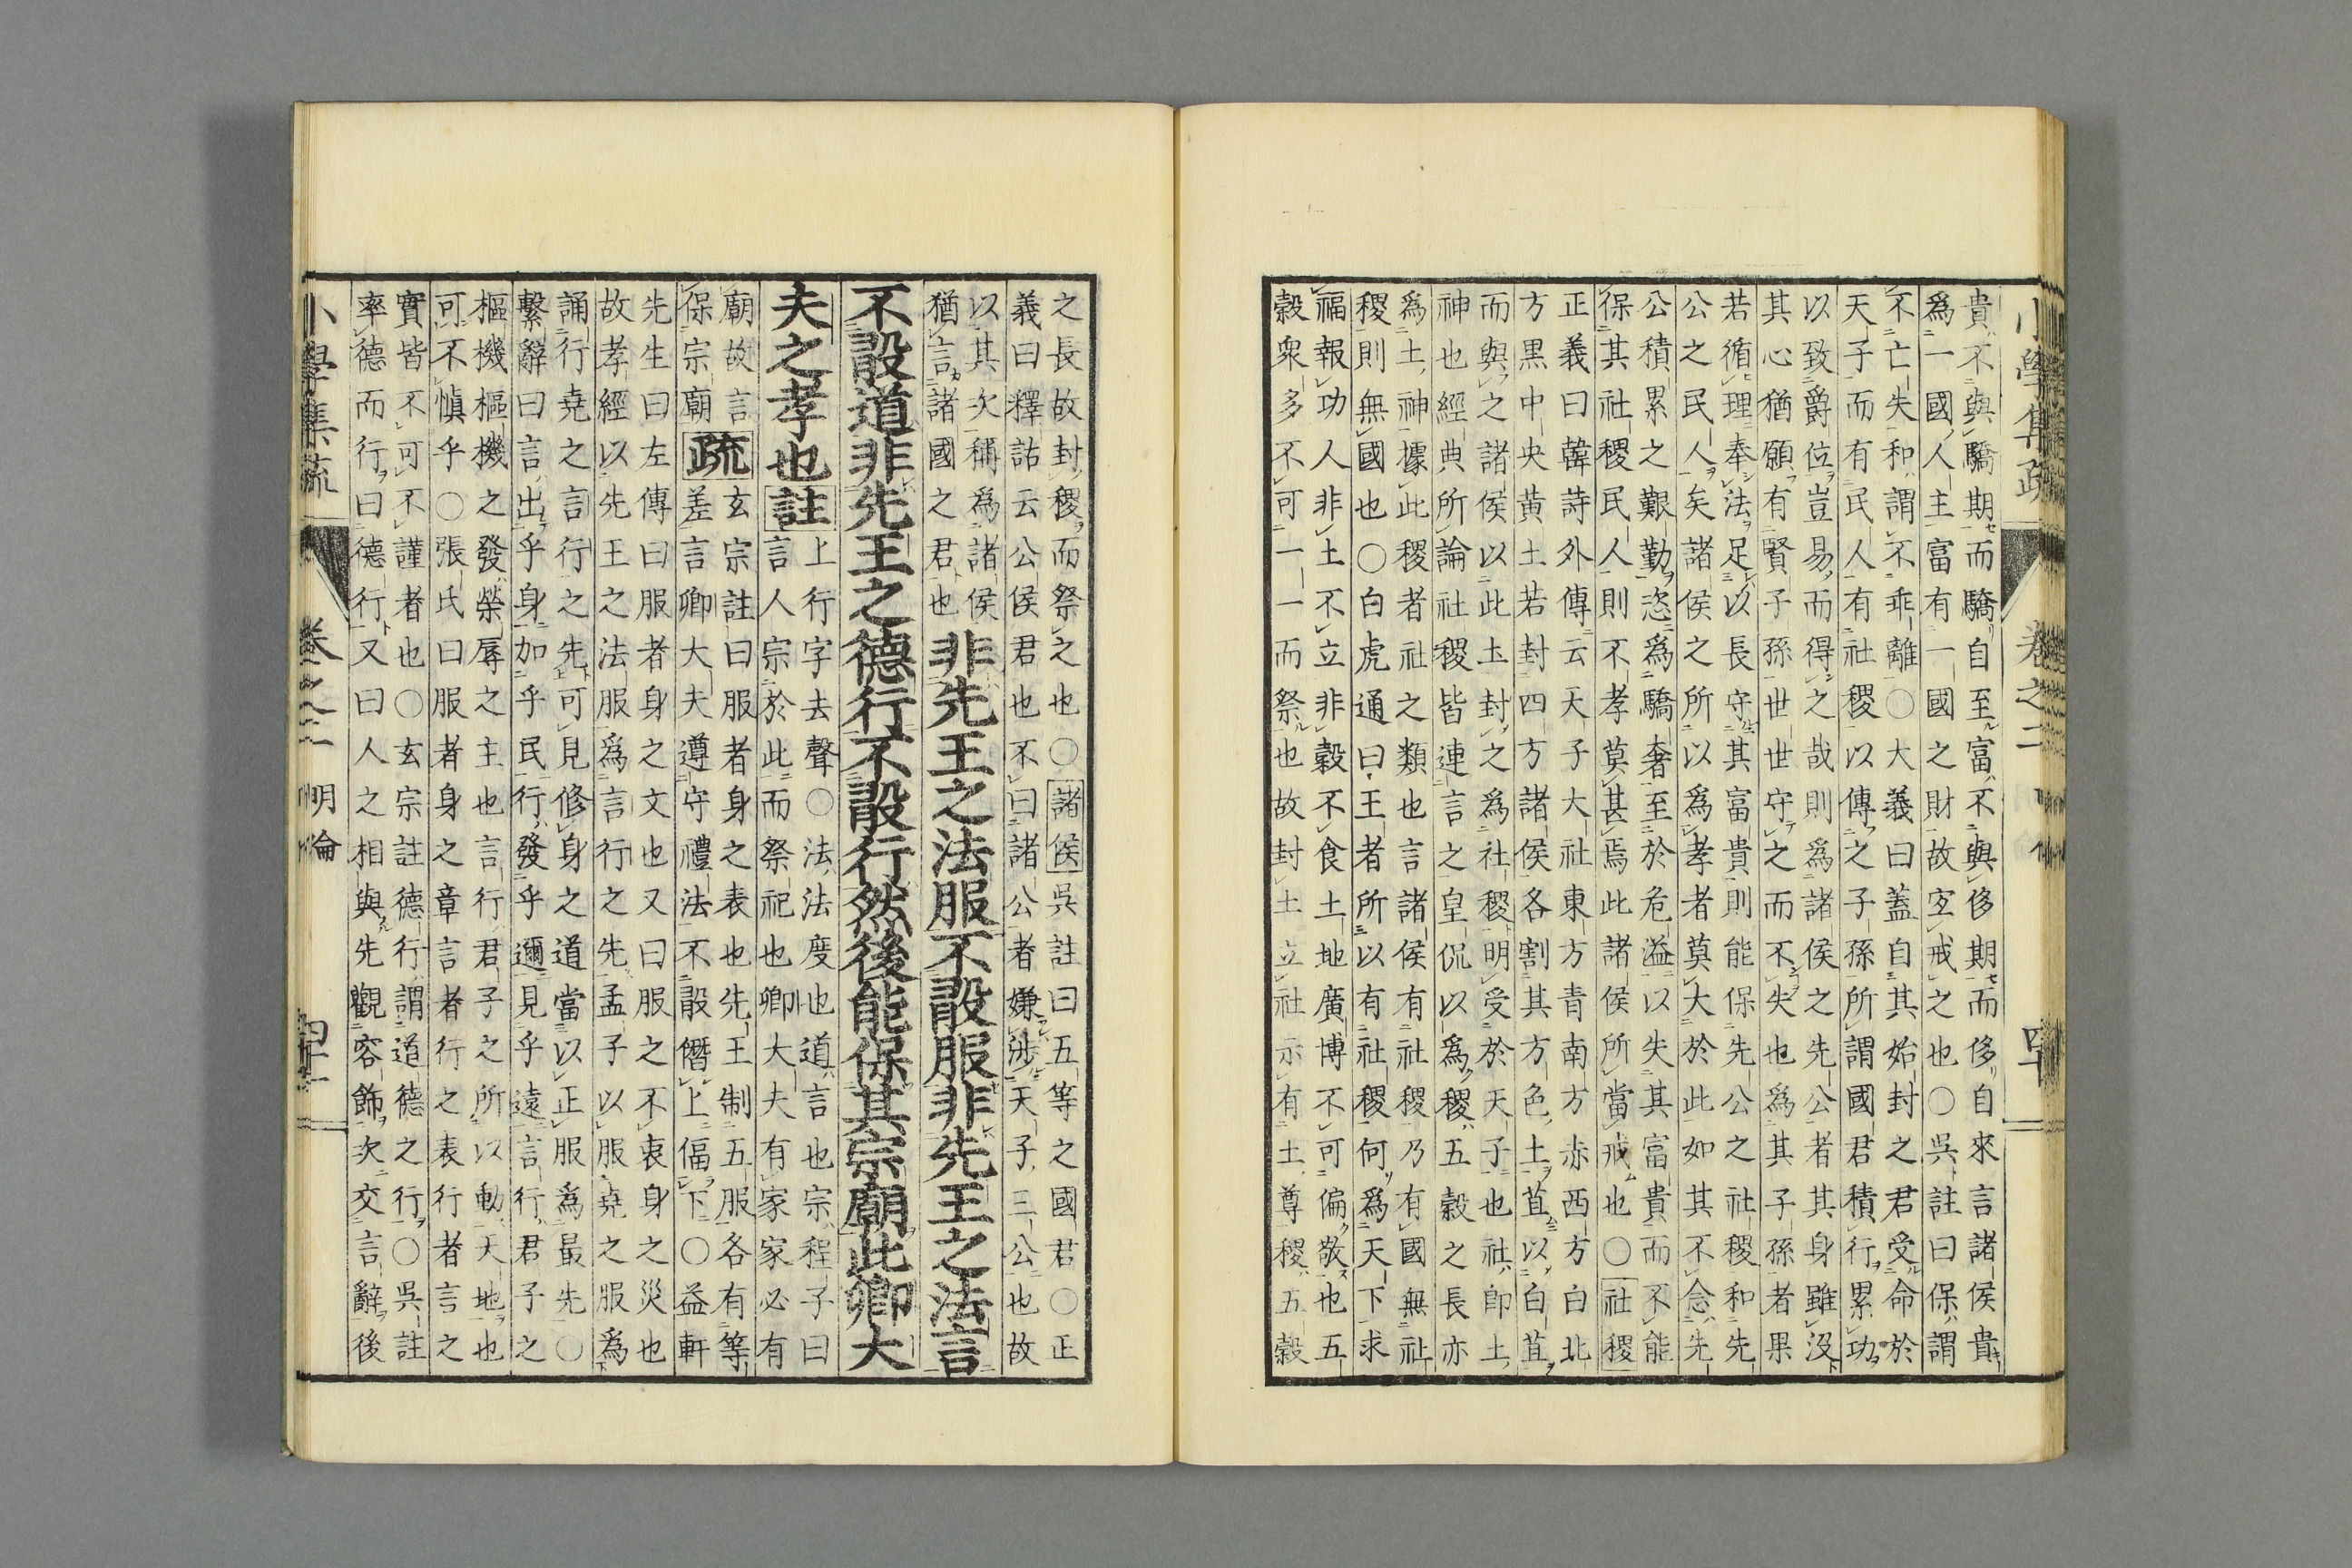 小學集疏 卷之二 四十
貴不與驕期而驕自至富不與侈期而侈自來言諸侯貴
爲一國人主富有一國之財故宜戒之也○吳註曰保謂
不亡失和謂不乖離○大義曰蓋自其始封之君受命於
天子而有民人有社稷以傳之子孫所謂國君積行累功
以致爵位豈易而得之哉則爲諸侯之先公者其身雖沒
其心猶願有賢子孫世世守之而不失也爲其子孫者果
若循理奉法足以長守其富貴則能保先公之社稷和先
公之民人矣諸侯之所以爲孝者莫大於此如其不念先
公積累之艱勤恣爲驕奢至於危溢以失其富貴而不能
保其社稷民人則不孝莫甚焉此諸侯所當戒也○社稷
正義曰韓詩外傳云天子大社東方青南方赤西方白北
方黒中央黃土若封四方諸侯各割其方色土苴以白苴
而與之諸侯以此土封之爲社稷明受於天子也社卽土
神也經典所論社稷皆連言之皇侃以爲稷五穀之長亦
爲土神據此稷者社之類也言諸侯有社稷乃有國無社
稷則無國也○白虎通曰王者所以有社稷何爲天下求
福報功人非土不立非穀不食土地廣博不可偏敬也五
穀衆多不可一一而祭也故封土立社示有土尊稷五穀
之長故封稷而祭之也○諸侯吳註曰五等之國君○正
義曰釋詁云公侯君也不曰諸公者嫌涉天子三公也故
以其次稱爲諸侯
猶言諸國之君也
非先王之法服不敢服非先王之法言
不敢道非先王之德行不敢行然後能保其宗廟此卿大
夫之孝也
註
上行字去聲○法法度也道言也宗程子曰
言人宗於此而祭祀也卿大夫有家家必有
廟故言
保宗廟
疏
玄宗註曰服者身之表也先王制五服各有等
差言卿大夫遵守禮法不敢僭上偪下○益軒
先生曰左傳曰服者身之文也又曰服之不衷身之災也
故孝經以先王之法服爲言行之先孟子以服堯之服爲
誦行堯之言行之先可見修身之道當以正服爲最先○
繫辭曰言出乎身加乎民行發乎邇見乎遠言行君子之
樞機樞機之發榮辱之主也言行君子之所以動天地也
可不愼乎○張氏曰服者身之章言者行之表行者言之
實皆不可不謹者也○玄宗註德行謂道德之行○吳註
率德而行曰德行又曰人之相與先觀容飾次交言辭後
小學集疏 卷之二 明倫 四十一